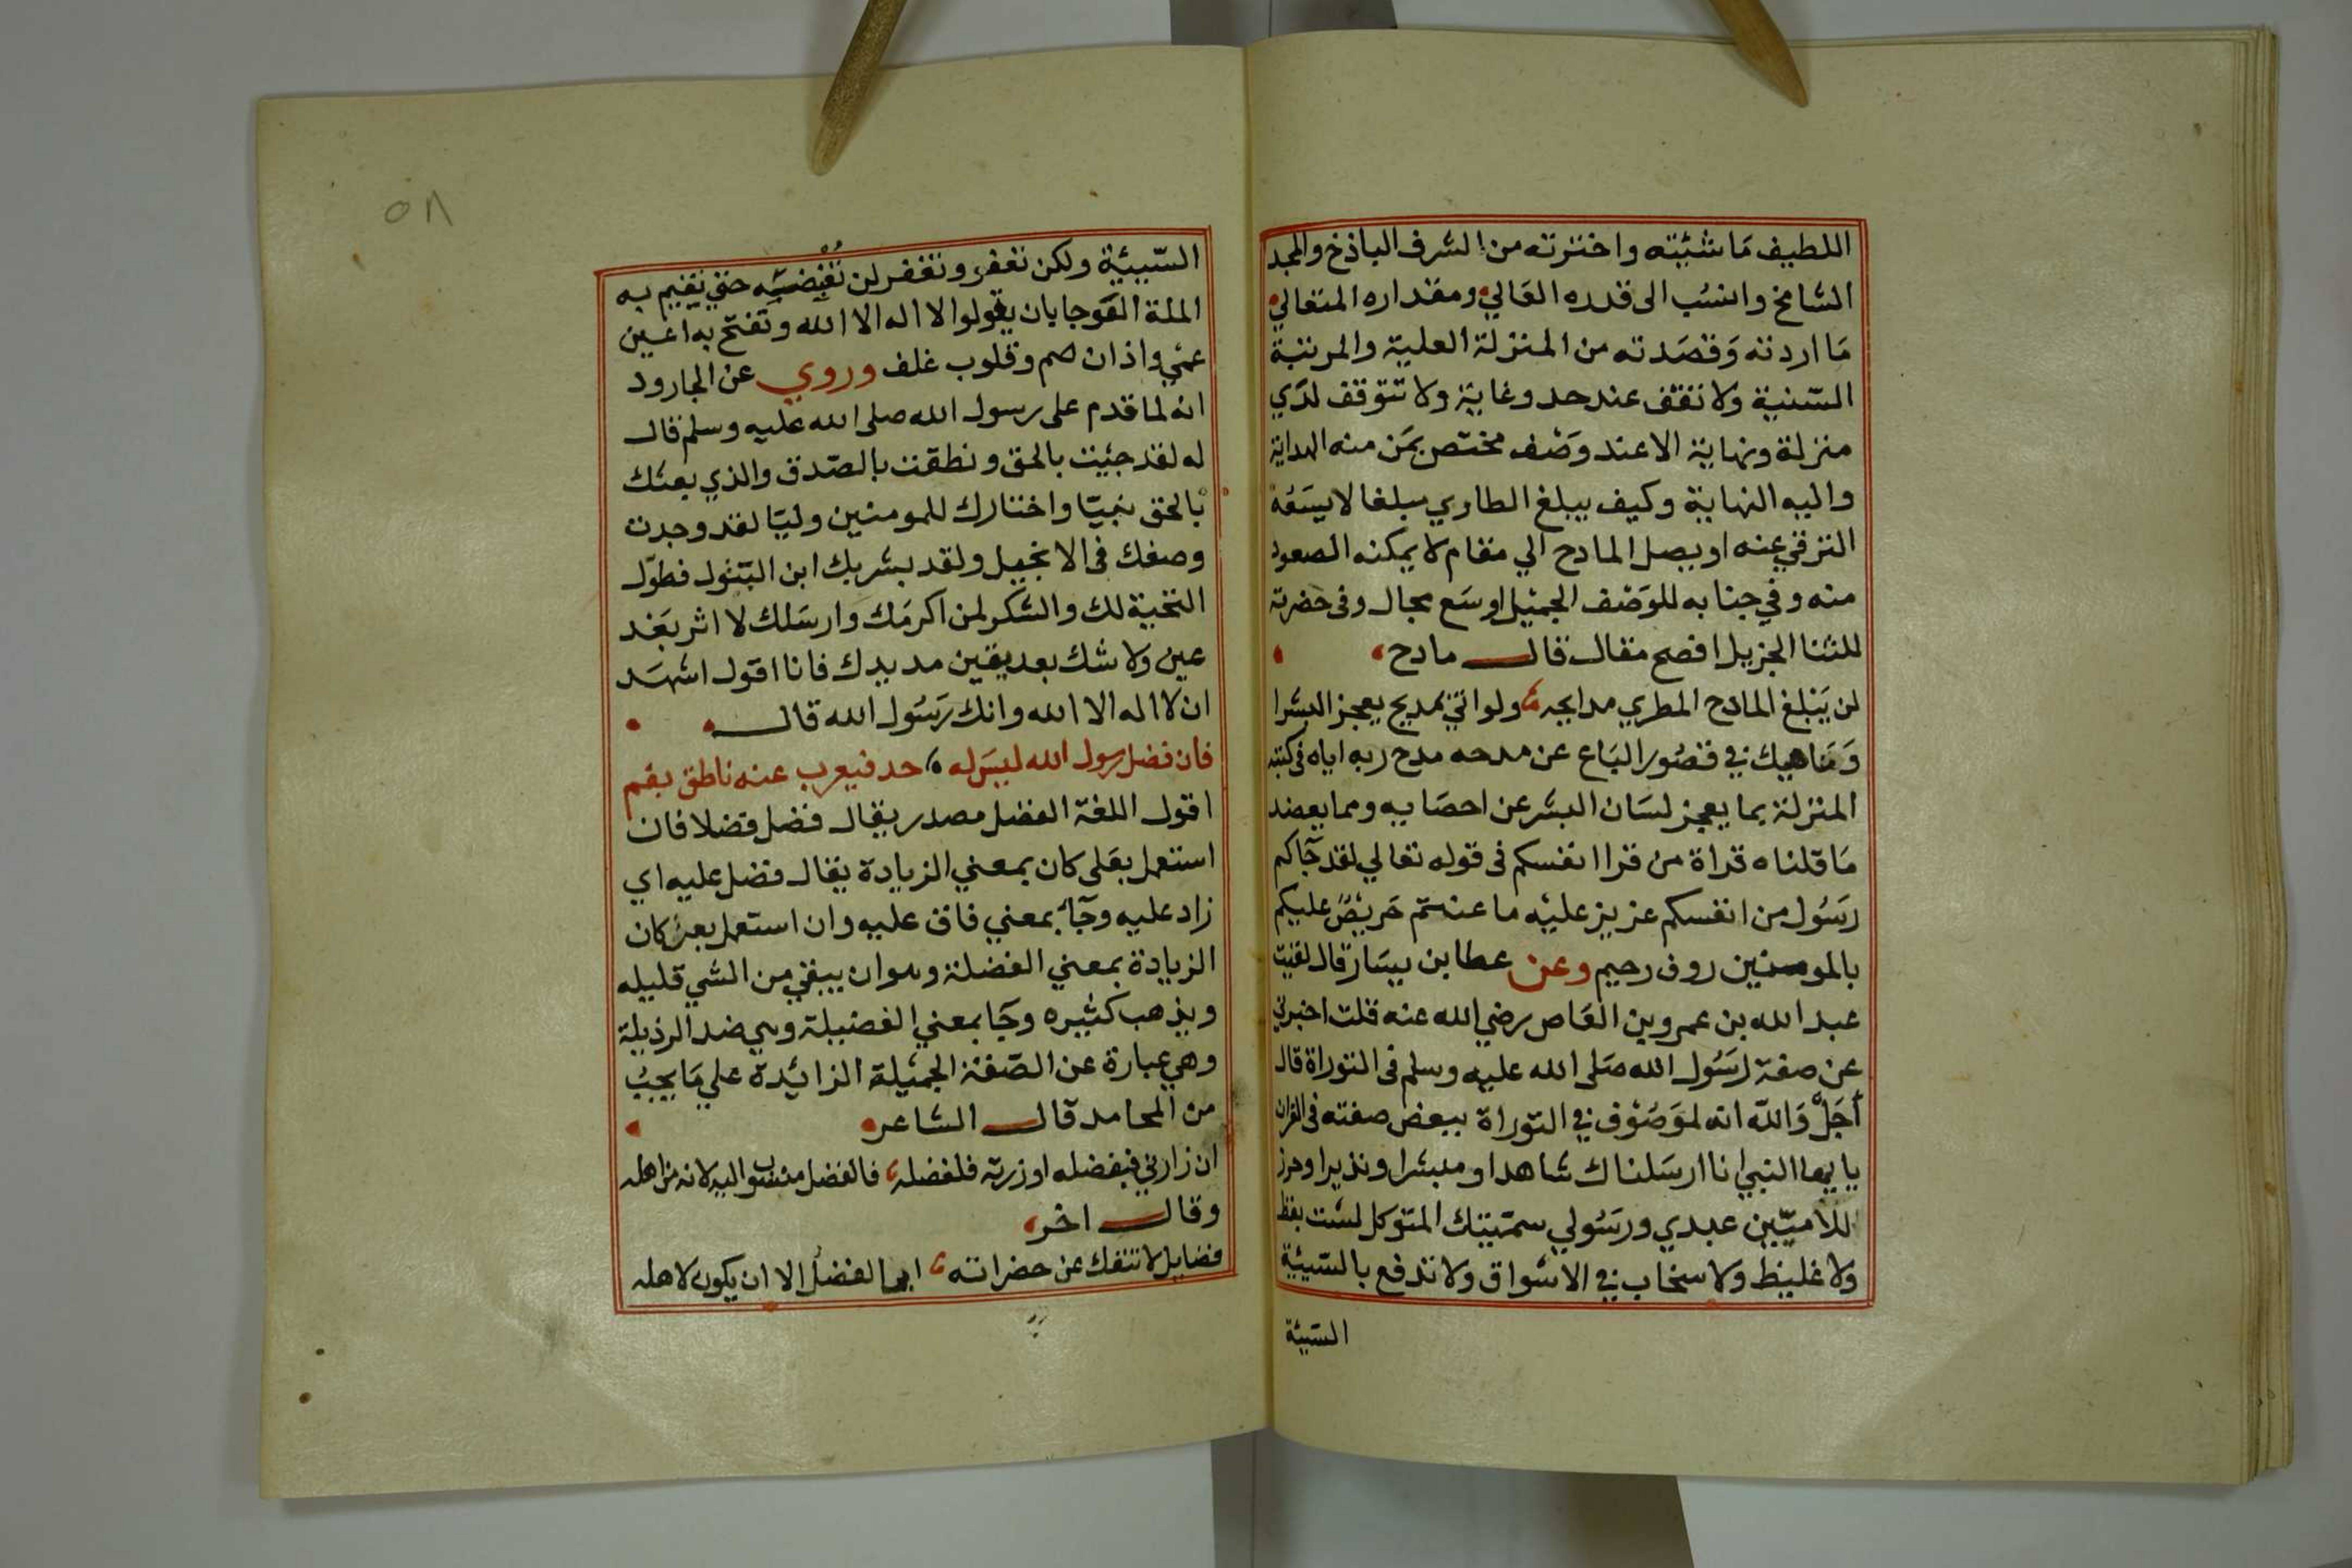 اللطيف مَا شئته واخترته من الشرف الباذخ والمجد
الشامخ وانسُب الى قدره العَالي ومقداره المتعالي
مَا اردته وَقصَدته من المنزلة العلية والمرتبة
السّنية ولا تقف عند حد وغاية ولا تتوقف لدَي
منزلة ونهاية الا عند وَصْف مختص بمَن منه الهداية
واليه النهاية وكيف يبلغ الطاري مبلغا لا يسَعُه
الترقي عنه او يصل المادح الي مقام لا يمكنه الصعود
منه وفي جنابه للوَصْف الجميل اوسَع مجال وفى حضرته
للثنا الجزيل افصح مقال قال مادح
لن يَبْلغ المادح المطري مدايحه ولو اتي بمديح يعجز البشرا
وَنَاهيك في قصُور البَاع عن مدحه مدح ربه اياه فى كتبه
المنزلة بما يعجز لسَان البشر عن احصَايه ومما يعضد
مَا قلناه قراة من قرا انفسكم فى قوله تعالي لقد جَآكم
رَسُول من انفسكم عزيز عليْه ما عنتم حَريْصٌ عليكم
بالمومنين روف رحيم وعن عطا بن يسَار قال لقيت
عبد الله بن عمرو بن العَاص رضي الله عنه قلت اخبرني
عن صفة رَسُول الله صَلى الله عليه وسلم فى التوراة قال
أَجَلْ وَاللّه انه لموَصُوْف في التوراة ببعض صفته فى القران
يايها النبي انا ارسَلناك شاهدا ومبشرا ونذيرا وحرز
للاميّين عبدي ورَسُولي سمّيتك المتوكل لسْت بفظ
ولا غليظ ولا سخاب في الاسْواق ولا تدفع بالسّيئية
السّيئة
٥٨
السّييئية ولكن تعفو وتغفر لن نُقْبضَه حتي نقيم به
الملة العَوجا بان يقولوا لا اله الا الله وتفتح به اعين
عمْي واذان صم وقلوب غلف وروي عن الجارود
انه لما قدم على رسول الله صلى الله عليه وسلم قال
له لقد جئيت بالحق ونطقت بالصّدق والذي بعثك
بالحق نبيّا واختارك للمومنين وليّا لقد وجدت
وصفك فى الانجيل ولقد بشر بك ابن البّتول فطوّل
التحية لك والشكر لمن اكرمَك وارسَلك لا اثر بعَد
عين ولا شك بعد يقين مد يدك فانا اقول اشهَد
ان لا اله الا الله وانك رَسُول الله قال
فان فضل رسول الله ليسَ له حد فيعرب عنه ناطق بفم
اقول اللغة الفضل مصدر يقال فضل فضلا فان
استعمل بعَلى كان بمعني الزيادة يقال فضل عليه اي
زاد عليه وجَآء بمعني فاق عليه وان استعمل بعن كان
الزيادة بمعني الفضلة وهو ان يبقي من الشي قليله
ويذهب كثيره وجَا بمعني الفضيلة وهي ضد الرذيلة
وهي عبارة عن الصّفة الجميْلة الزائدة علي مَا يجبُ
من المحامد قال الشاعر
ان زارني فبفضله او زرته فلفضله فالفضل منسوب اليه لانه من اهله
وقال اخر
فضايل لا تنفك عن حضراته ابي الفضلُ الا ان يكون لاهله